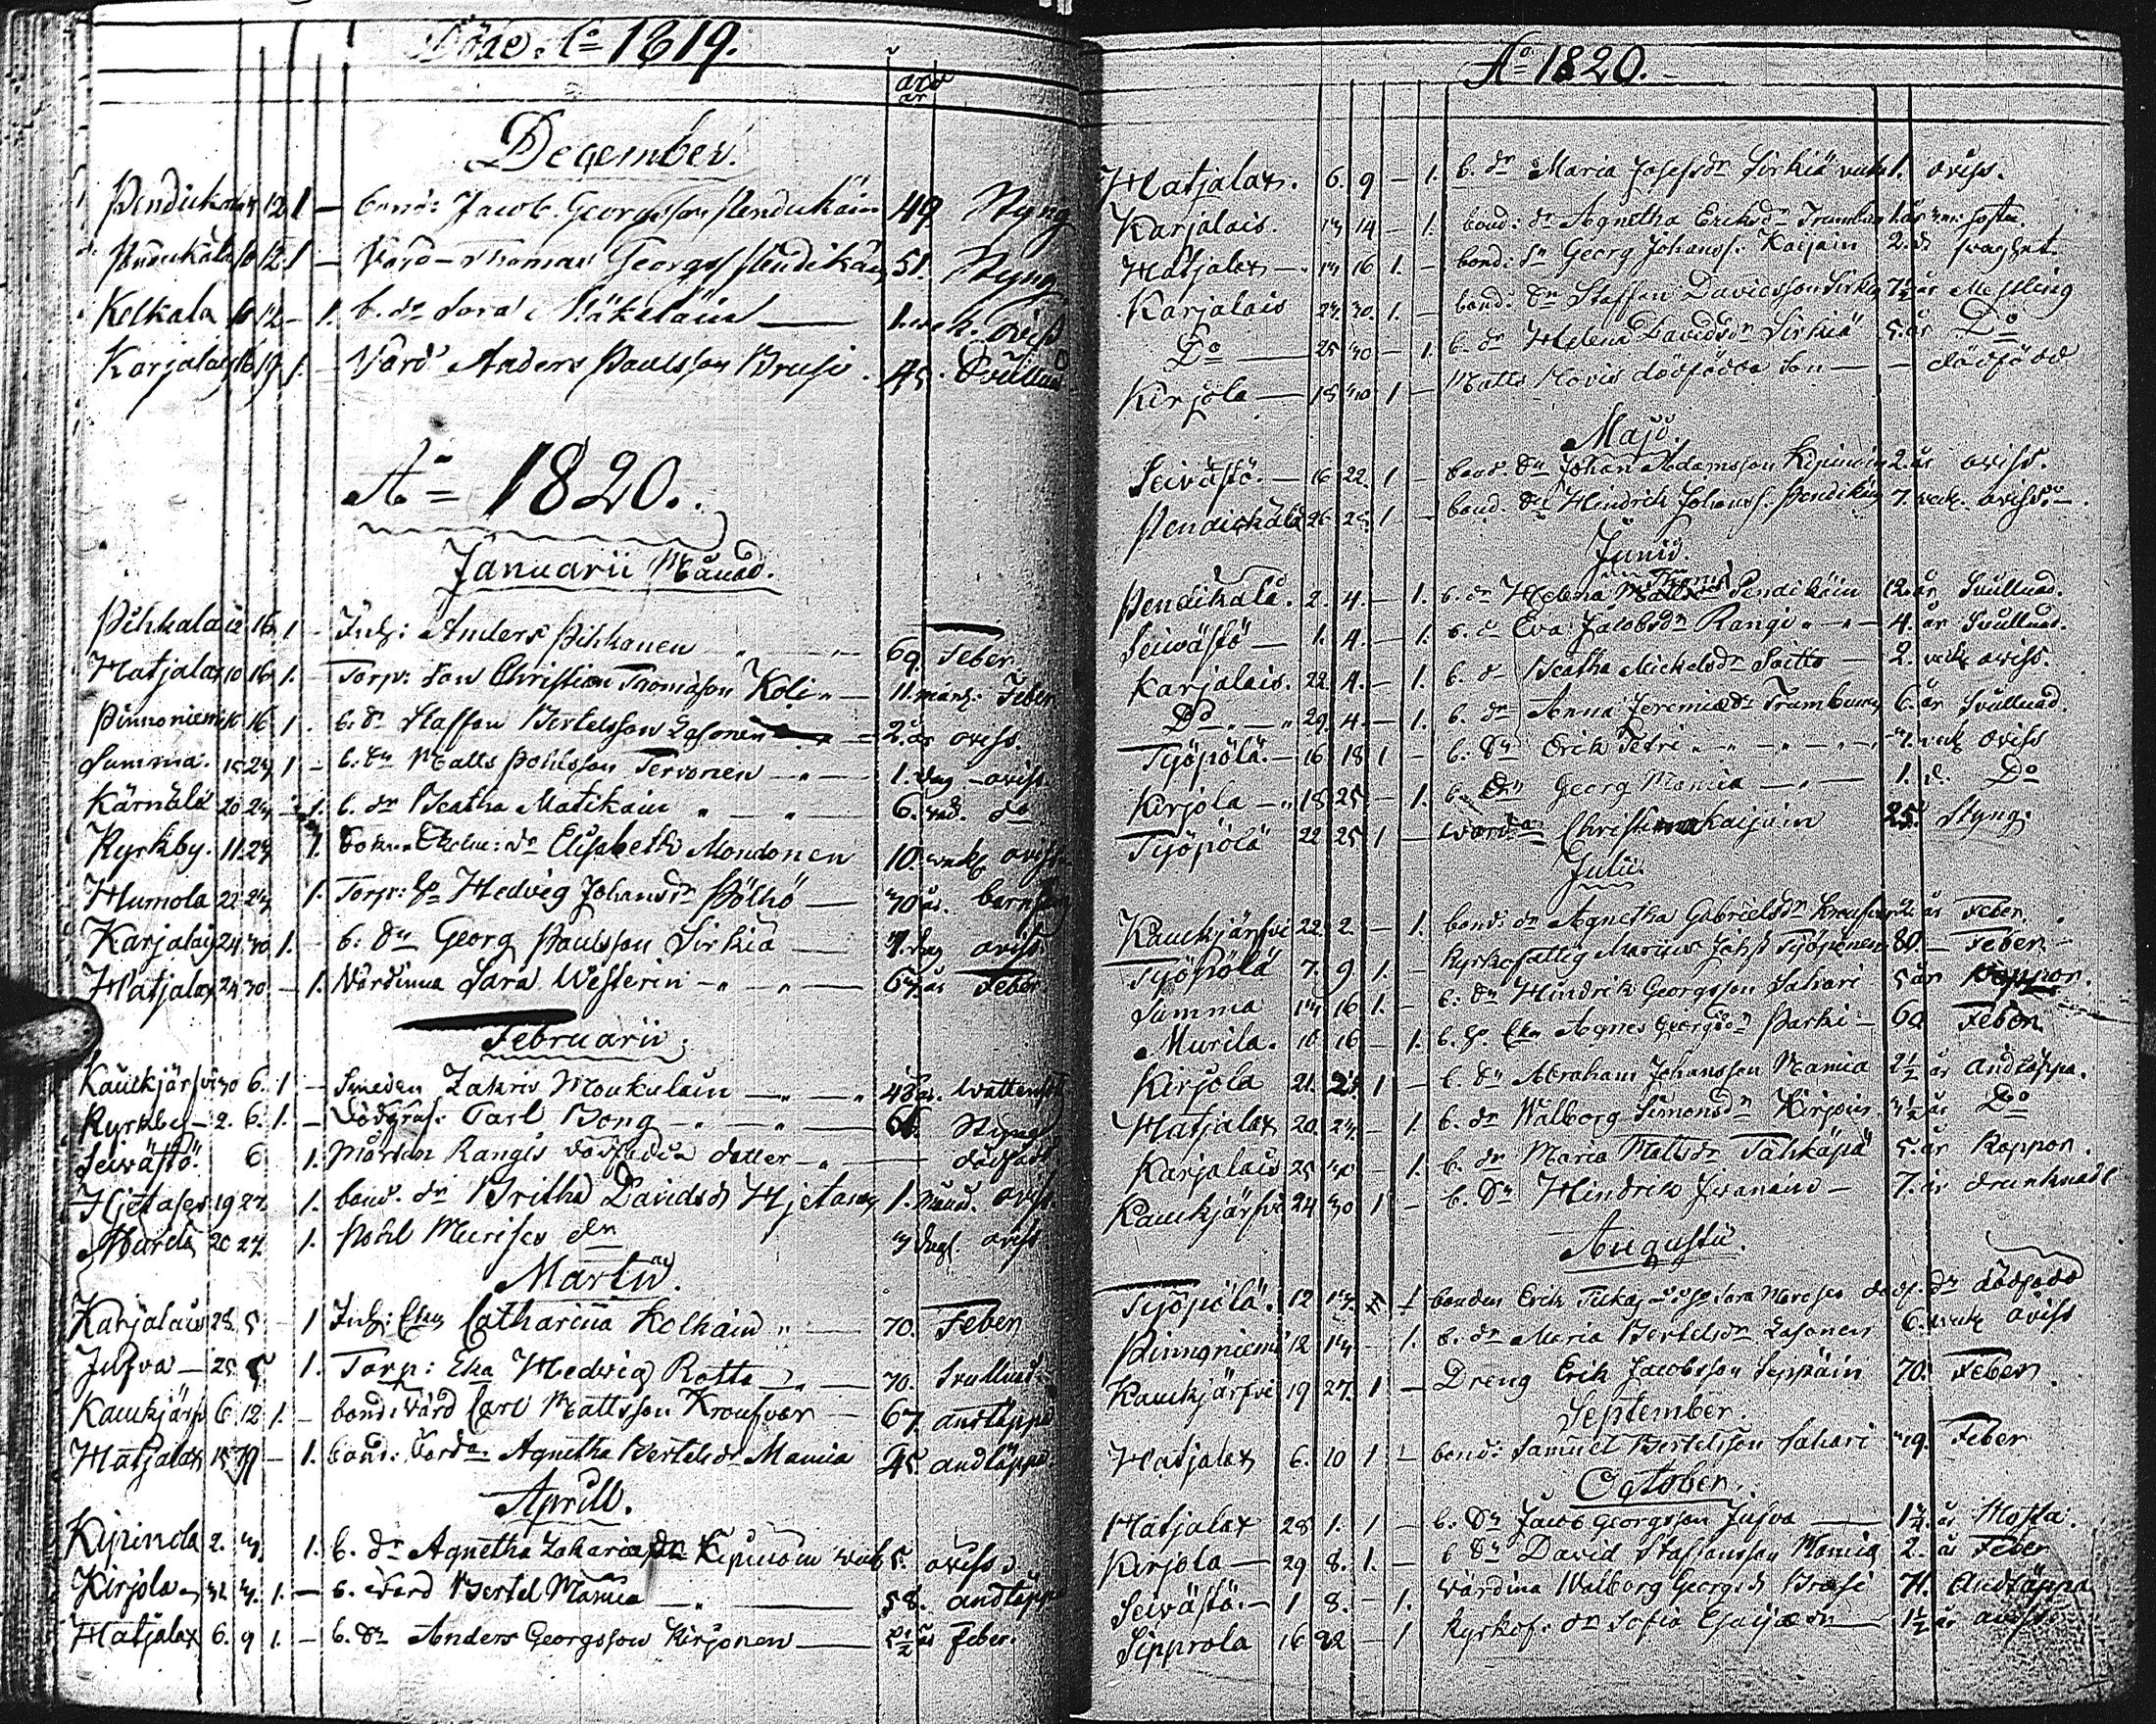 Döde Aō 1819.
år
December.
Pendikala 8 12 1 – bond: Jacob Georgsson Pendikäin 49 Styng
Pendikala 10 12 1 – Värd – Thomas Georgss Pendikäin 51. Styng
Kolkala 10 12 – 1. b. dr Sara Mäkeläin — 1. wek. oviss
Karjalais 16 19 1. – Värd Anders Paulsson Bruse. 45. Svullnad
Aō 1820.
Januarii Månad.
Pihkala 12 16 1 – Inh: Anders Pihkanen 69 Feber
Hatjalax 10 16 1. – Torp: son Christian Thomasson Koli — 11. mån: Feber
Pinnoniemi 16 16 1. b. Sn Staffan Bertelsson Lasonen 2. år oviss.
Summa. 15 23 1 – b. Sn Matts Pohlsson Tervonen — 1. dag oviss.
Kärnälä 20 23 – 1. b. dr Beatha Matikain 6. do
Kyrkby. 11. 23 1. dr Elisabeth Mondonen 10. wek oviss
Humola 22 23 1. Torp: Hedvig Johansdr Pölhö — 30 år. barnsäng
Karjalais 24 30 1. – b. Sn Georg Paulsson Sirkiä — 1. dag oviss.
Hatjalax 24 30 – 1. Värdinna Sara Westerin — 63. år Feber
Februarii.
Kaukjärfvi 30 6. 1 – Smeden Zakris Moukulain — 48 år. Wattensot
Kyrkby – 2. 6. 1. – Dödgräf. Carl Bong — Styng
Seivästö. 6 1. Mårten Rangis dödfödda dotter — dödfödd
Hjetases 19 27. 1. bond. dr Britha Davidsd Hjetanen 1. månd. oviss.
Murila 20 27. 1. Pohl Meurises dr 3 dag. oviss
Martii.
Karjalais 28. 5 – 1 Inh: Eka Catharina Kolkain — 70. Feber
Jufva — 25 5 1. Torp: Eka Hedvig Rotts — 70. Svullnad
Kaukjärfvi 6 12 1. – bond: Värd Carl Mattsson Kroufver — 67 andtäppa
Hatjalax 15 19 – 1. bond: Värda Agnetha Bertelsdr Mamia 45 andtäppa
Aprill.
Kipinola 2. 3. 1. b. dr Agnetha Zakariædr Kipinoin wek 5. oviss
Kirjola – 31 3. 1. – b. Värd Bertel Mamia — 58. andtäppa
Hatjalax 6. 9 1. – b. Sn Anders Georgsson Kirjonen — 2½ år Feber.
Aō 1820.
Hatjalax. 6. 9 – 1. b. dr Maria Josefsdr Sirkiä 1. oviss.
Karjalais. 13 14 – 1. bond: dr Agnetha Eriksdr Trumbar 1 år hosta.
Hatjalax — 13 16 1. – bond: Sn Georg Johanss: Kaipain 2. d svaghet.
Karjalais 27. 30. 1. – bond: Sn Staffan Davidsson Sirkiä 7½ år Meslling
Do — 25 30 – 1. b. dr Helena Davidsdr Sirkiä 5. år Do
Kirjola — 18 30 1 – Matts Hovis dödfödda Son — – dödfödd
Maji.
Seivästö. — 16 22. 1 – bond. Sn Johan Adamsson Kipinoin 2. år oviss.
Pendikala 26 28 1 – bond. Sn Hindrik Johanss. Pendikäin 7 wek. oviss. –
Junii.
Pendikala. 2. 4. – 1. b. dr Helena Thomasdr Pendikäin 12. år Svullnad.
Seivästö — 1. 4. – 1. b. d Eva Jacobsdr Rangi – 4. år Svullnad.
Karjalais. 22. 4. – 1. b. d Beatha Michelsdr Saitto — 2. wek oviss.
Do – 29 4. – 1. b. dr Anna Jeremiædr Trumbar 6. år Svullnad.
Työpölä. — 16 18 1 – b. Sn Erik Petri – 3. wek oviss
Kirjola — 18 25 – 1. b. Georg Mamia — 1. d. Do
Työpölä 22 25 1 – Värda Christina Kaipain 25. Styng.
Julii.
Kaukjärfvi 22. 2 – 1. bond: dr Agnetha Gabrielsdr Kroufver 2. år Feber.
Työpölä 7. 9 1. – Kyrkofattig Marcus Johss Työpönen 80. – Feber –
Summa 13 16 1. – b. Sn Hindrik Georgsson Sahari 5 år Koppor.
Murila. 10 16 – 1. b. Eka Agnes Georgsdr Parki – 60 Feber
Kirjola 21. 23. 1 – b. Sn Abraham Johansson Mamia 2½ år Andtäppa.
Hatjalax 20. 23. – 1 b. dr Walborg Simonsdr Kirjoin år Do
Karjalais 25 30 – 1. b. dr Maria Mattsdr Tahkäpä 5. år Koppor.
Kaukjärfvi 24 30 1 – b. Sn Hindrik Ivanain — 7. år drunknade
Augusti.
Työpölä. 12 13. 1 bonden Erik Sara dr dödfödd
Pinnoniemi 12 13 – 1. b. dr Maria Bertelsdr Lasonen 6. wek oviss
Kaukjärfvi 19 27. 1 – Dreng Erik Jacobsson Seppäin 70. Feber.
September.
Hatjalax 6. 10 1 – bond: Samuel Bertelsson Sahari 39. Feber
October.
Hatjalax 28 1. 1 – b. Sn Jacob Georgsson Jufva — 1¾. år Hosta.
Kirjola — 29 8. 1. – b Sn David Staffansson Mamia 2. år Feber
Seivästö. — 1 8. – 1. Värdina Walborg Georgsd Bruse 71. Andtäppa
Sipprola 16 22 – 1 Kyrkof: dr Sofia Esaijædr — 1½ år oviss.